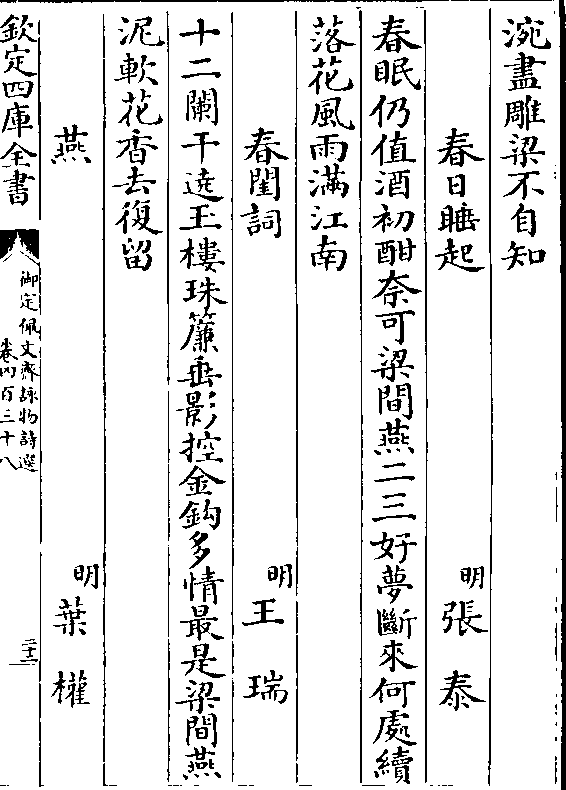 涴盡雕梁不自知
春日睡起 明 張泰
春眠仍值酒初酣奈可梁間燕二三好夢斷來何處續
落花風雨滿江南
春閨詞 明 王瑞
十二闌干遶玉樓珠簾垂影控金鈎多情最是梁間燕
泥軟花香去復留
燕 明 葉權
欽定四庫全書
御定佩文齋詠物詩選
卷四百三十八
二十二